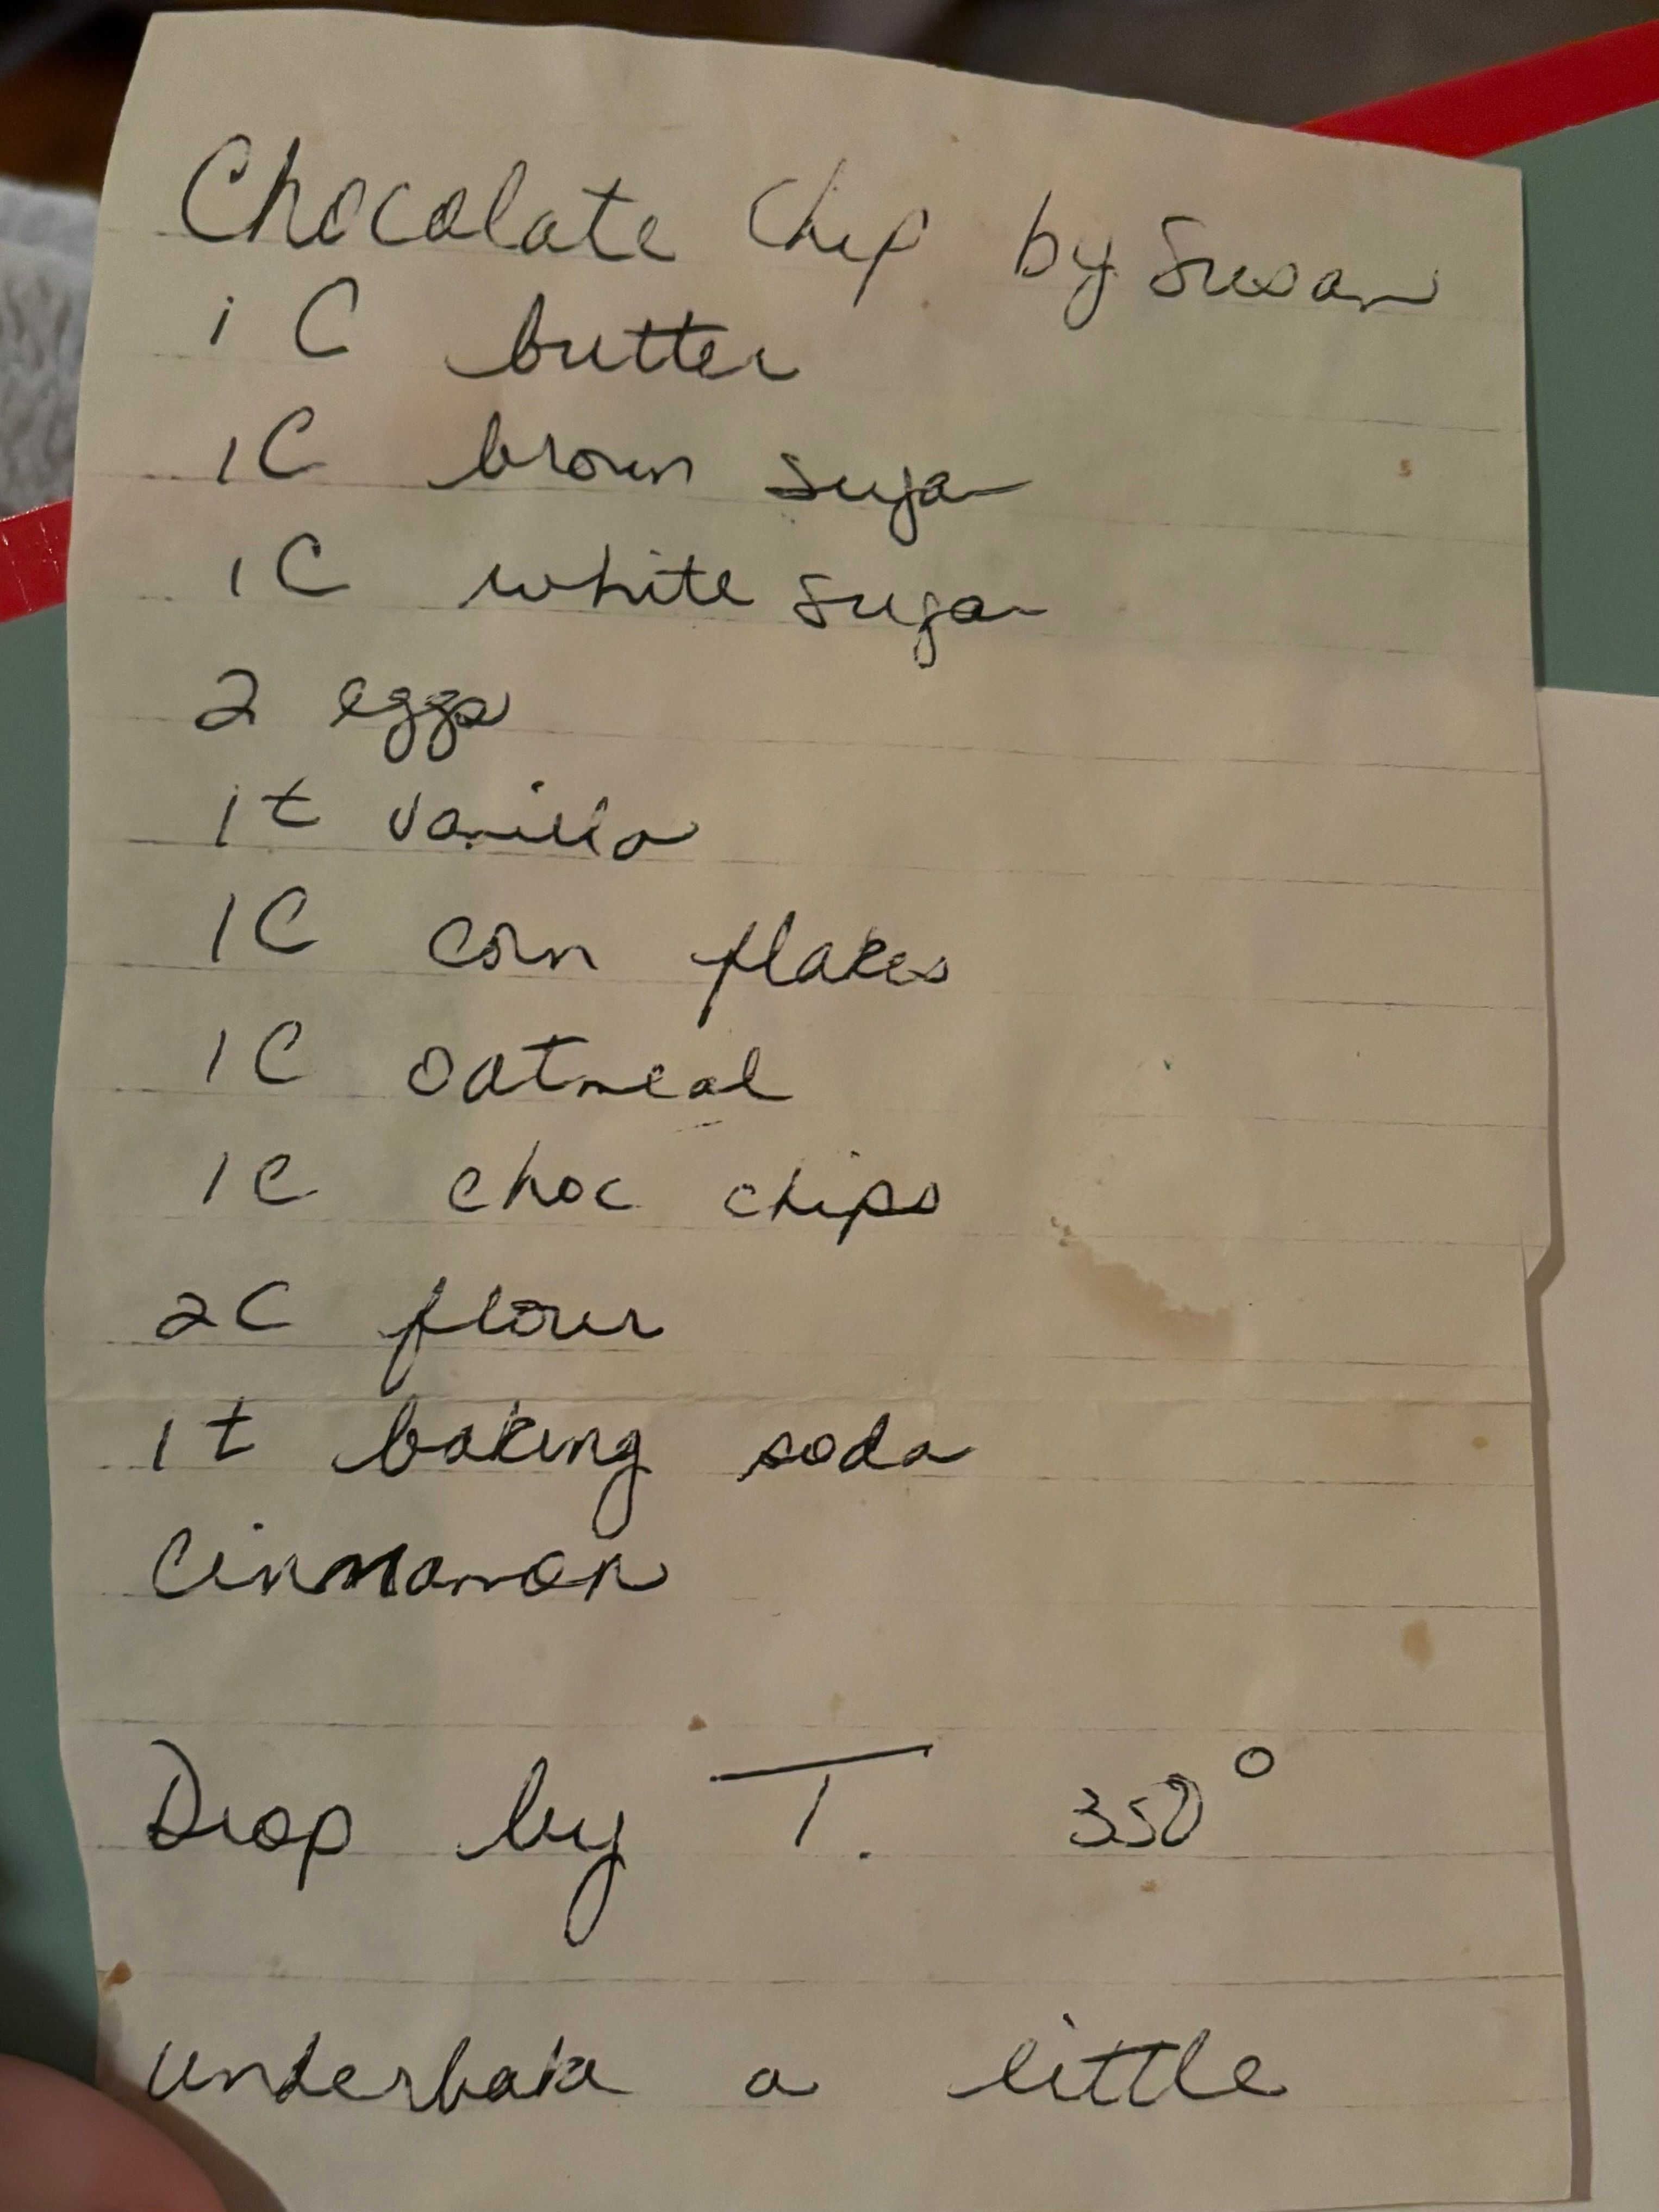 Chocolate Chip by Susan
1 C butter
1C brown sugar
1C white sugar
2 eggs
1t vanilla
1C corn flakes
1C oatmeal
1C choc chips
2C flour
1t baking soda
Cinnamon
Drop by T. 350°
underbake a little